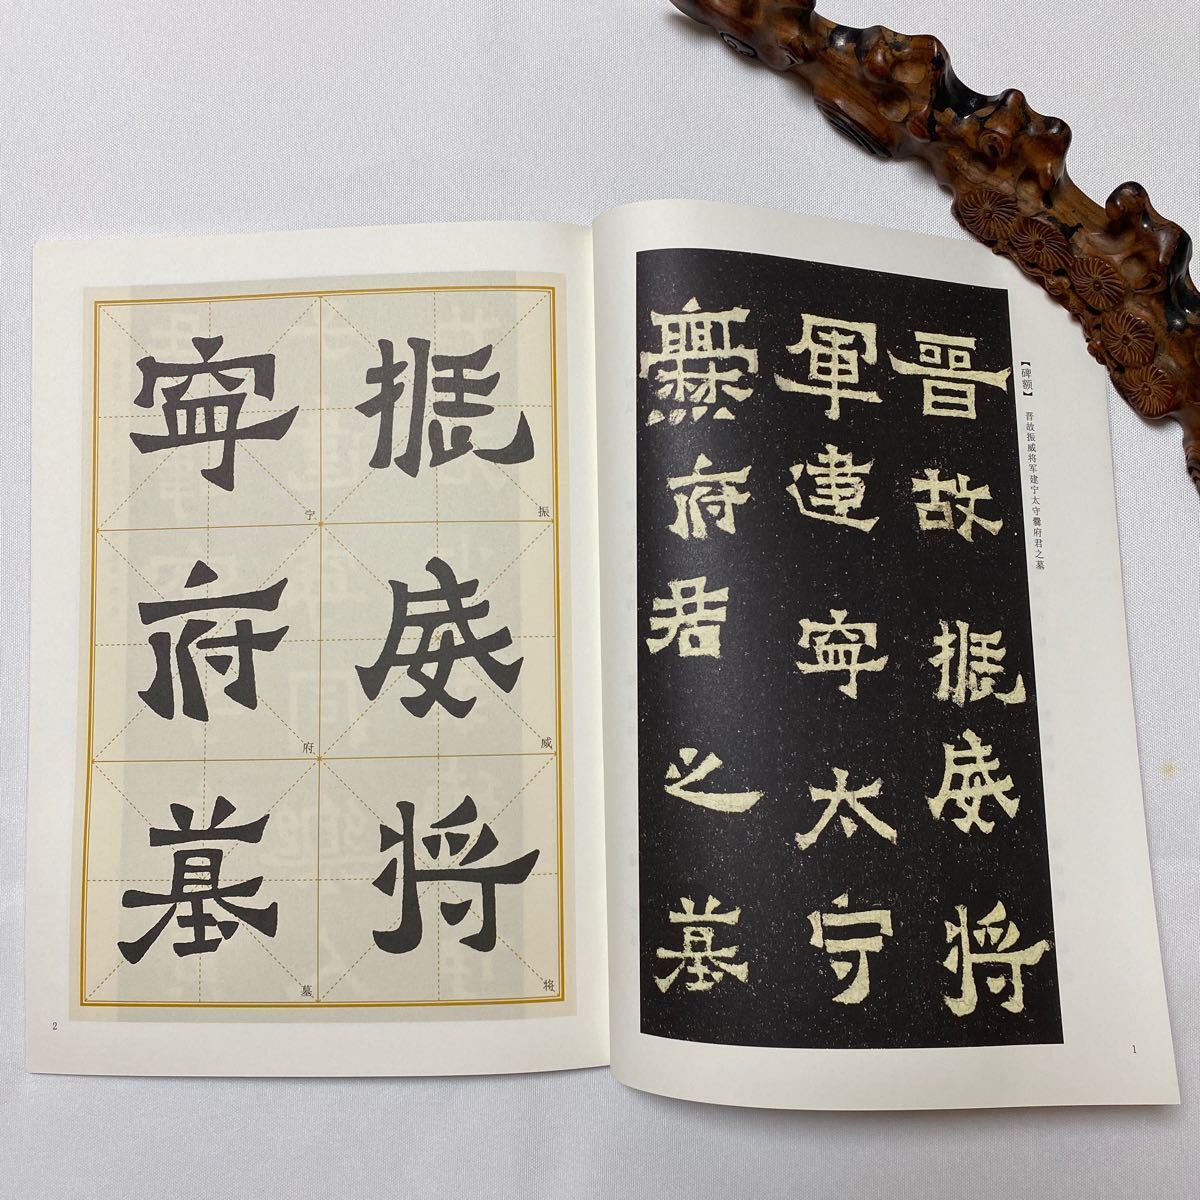 【碑额】 晋故振威将军建宁太守爨府君之墓
晉故振威将
軍建寧太守
爨府君之墓
1
振威将
振
威
将
寧府墓
宁
府
墓
2